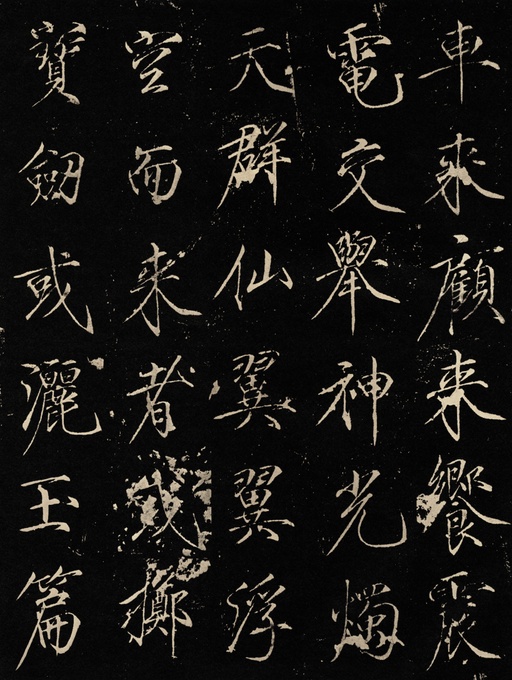 車來顧來饗震
電交舉神光燭
天群仙翼翼浮
空而來者或擲
寶劒或灑玉篇